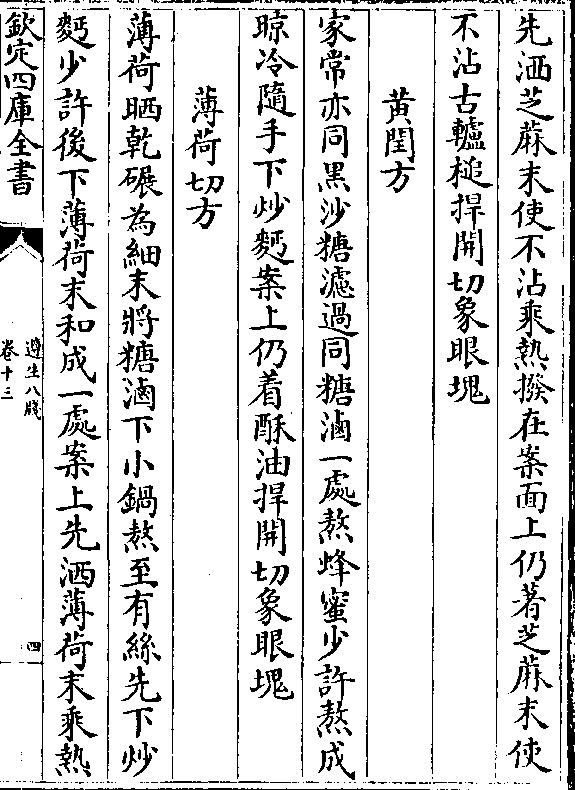 先洒芝蔴末使不沾乘熱撥在案面上仍著芝蔴末使
不沾古轤槌捍開切象眼塊
黄閏方
家常亦同黑沙糖濾過同糖滷一處熬蜂蜜少許熬成
晾冷隨手下炒麪案上仍着酥油捍開切象眼塊
薄荷切方
薄荷晒乾碾為細末將糖滷下小鍋熬至有絲先下炒
麪少許後下薄荷末和成一處案上先洒薄荷末乘熱
欽定四庫全書
遵生八牋
卷十三
四